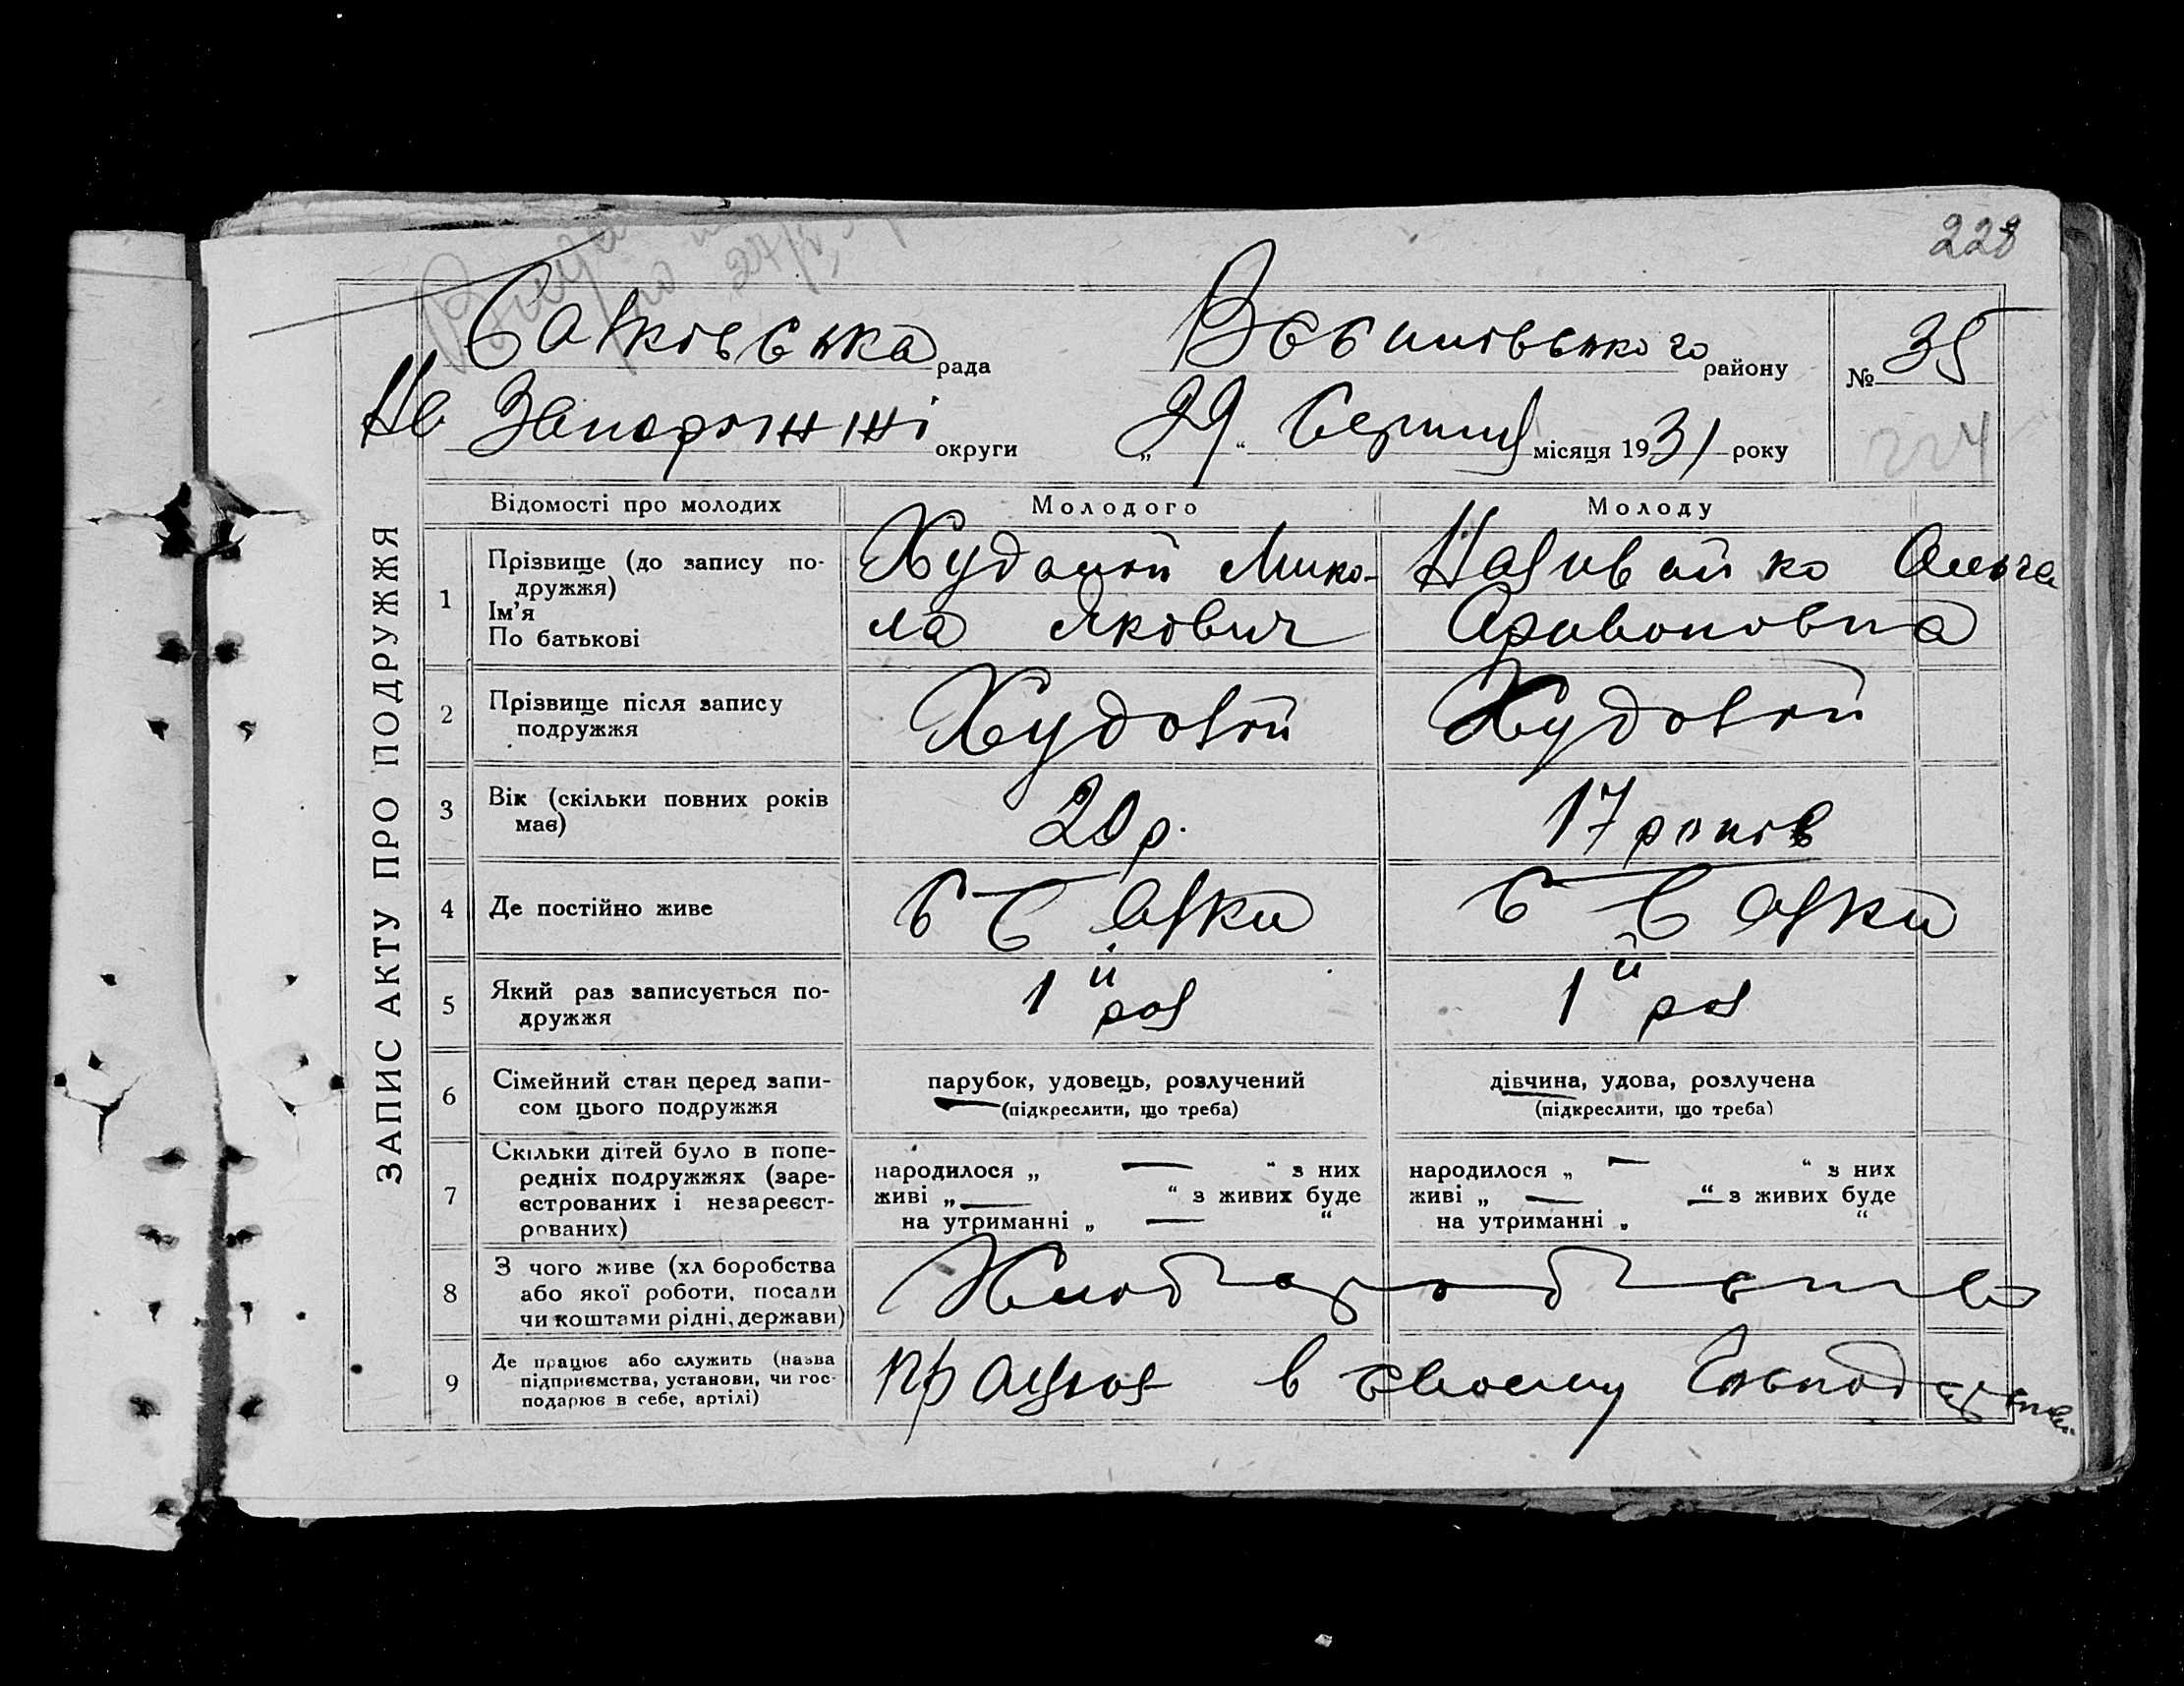 228
Савківська рада
району
№ 35
На Запоріжжі округи
„29“ Серпня місяця 1931 року
224
ЗАПИС АКТУ ПРО ПОДРУЖЖЯ
Відомості про молодих Молодого Молоду
1 Прізвище (до запису по-
дружжя)
Ім'я
По батькові
Мико-
ла Якович
Наливайко Ольга
2 Прізвище після запису
подружжя
Худолій Худолій
3 Вік (скільки повних років
має)
20 р. 17 років
4 Де постійно живе
5 Який раз записується по-
дружжя
1й раз 1й раз
6 Сімейний стан перед запи-
сом цього подружжя
парубок, удовець, розлучений
(підкреслити, що треба)
дівчина, удова, розлучена
(підкреслити, що треба)
7 Скільки дітей було в попе-
редніх подружжях (заре-
єстрованих і незареєст-
рованих)
народилося „ — “ з них
живі „ — “ з живих буде
на утриманні „ — “
народилося „ — “ з них
живі „ — “ з живих буде
на утриманні „ “
8 З чого живе (хліборобства
або якої роботи, посади
чи коштами рідні, держави)
9 Де працює або служить (назва
підприємства, установи, чи гос-
подарює в себе, артілі)
працює в своему